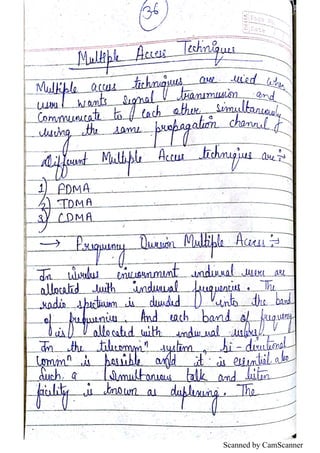 36
Multiple Access Techniques
Multiple access techniques are used when
user wants signal transmission and
Communicate to each other simultaneously
using the same propagation channel.
Different Multiple Access techniques are :-
1) FDMA
2) TDMA
3) CDMA
→ Frequency Division Multiple Access :-
In wireless environment are
allocated with frequencies. The
radio spectrum is divided into the band
of frequencies. And each band of frequency
is allocated with user.
In the telecommn system, bi-directional
Commn is possible and it is essential also
such a simultaneous talk and listen
facility is known as duplexing. The
Scanned by CamScanner